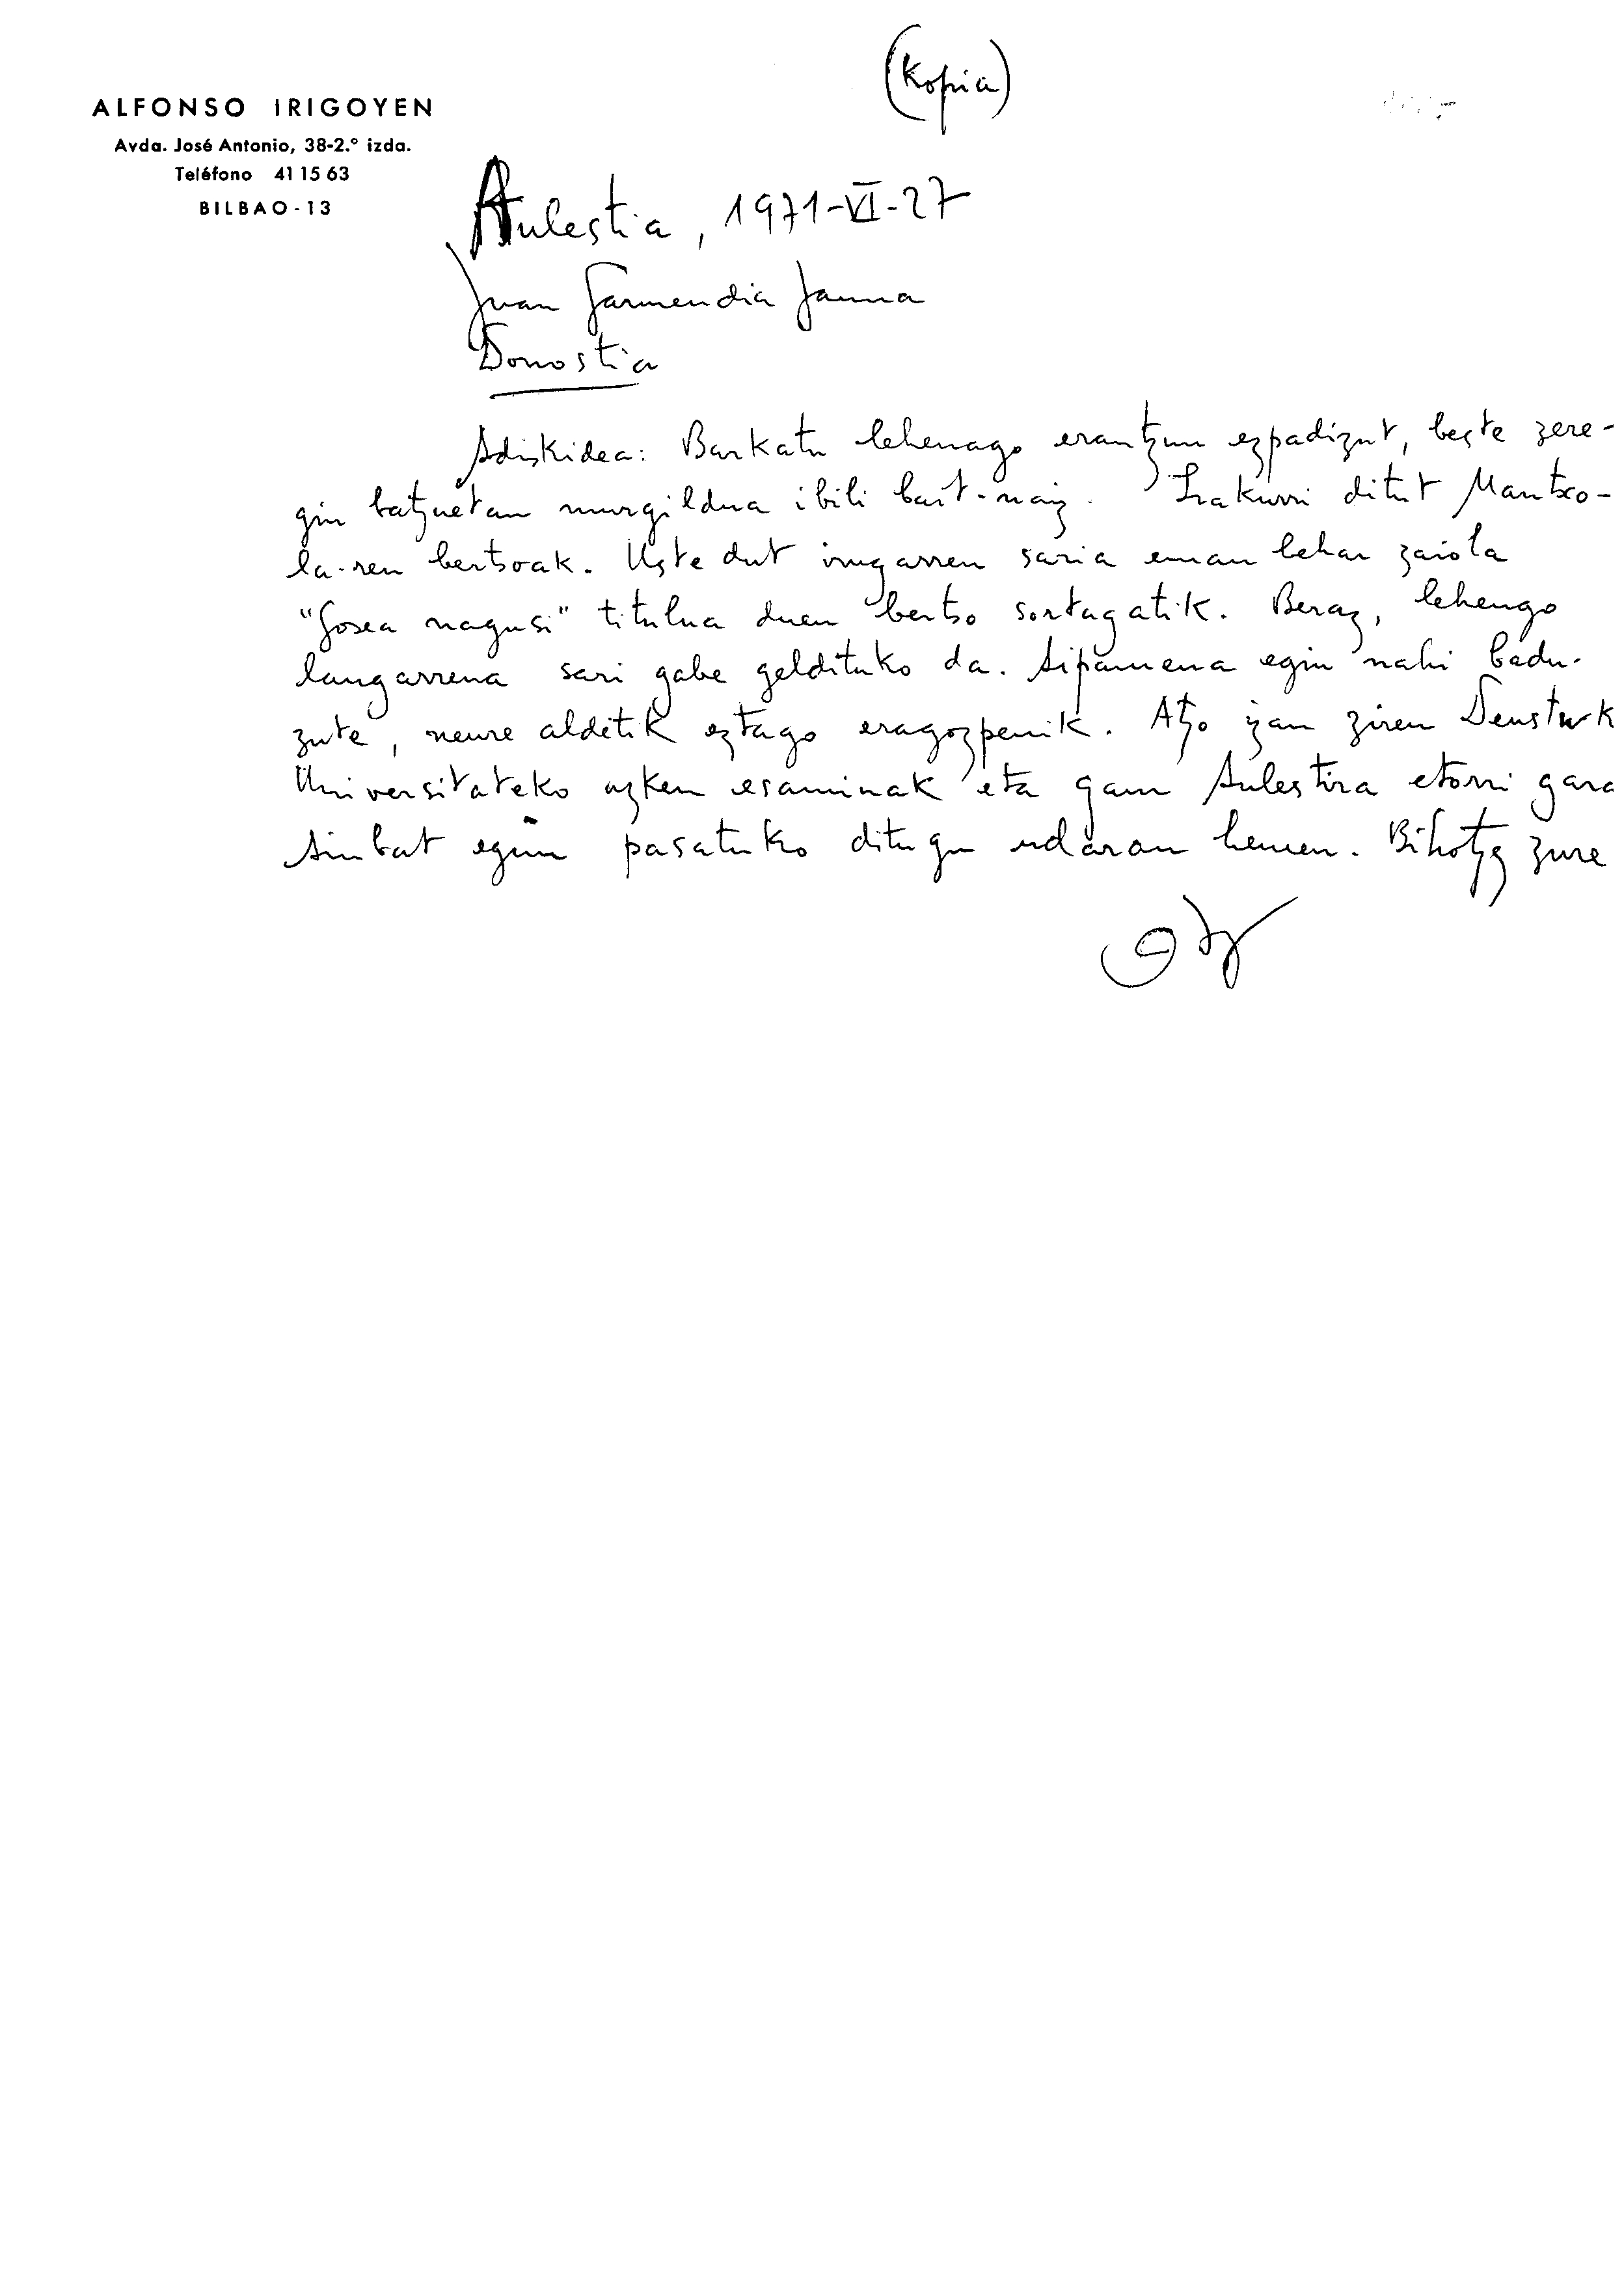 (Kopia)
ALFONSO IRIGOYEN
Avda. José Antonio, 38-2.º izda.
Teléfono 41 15 63
BILBAO-13
Aulestia, 1971-VI-27
Juan Garmendia Jauna
Donostia
Adiskidea: Barkatu lehenago erantzun ezpadizut, beste zere-
gin batzuetan murgildua ibili bait-naiz. Irakurri ditut Mantxo-
la-ren bertsoak. Uste dut irugarren saria eman behar zaiola
"Gosea nagusi" titulua duen bertso sortagatik. Beraz, lehengo
laugarrena sari gabe geldituko da. Aipamena egin nahi badu-
zute, neure aldetik eztago eragozpenik. Atzo izan ziren Deustuk
Universitateko azken esaminak eta gaur Aulestira etorri gara
Ainbat egun pasatuko ditugu udaran hemen. Bihotzez zure